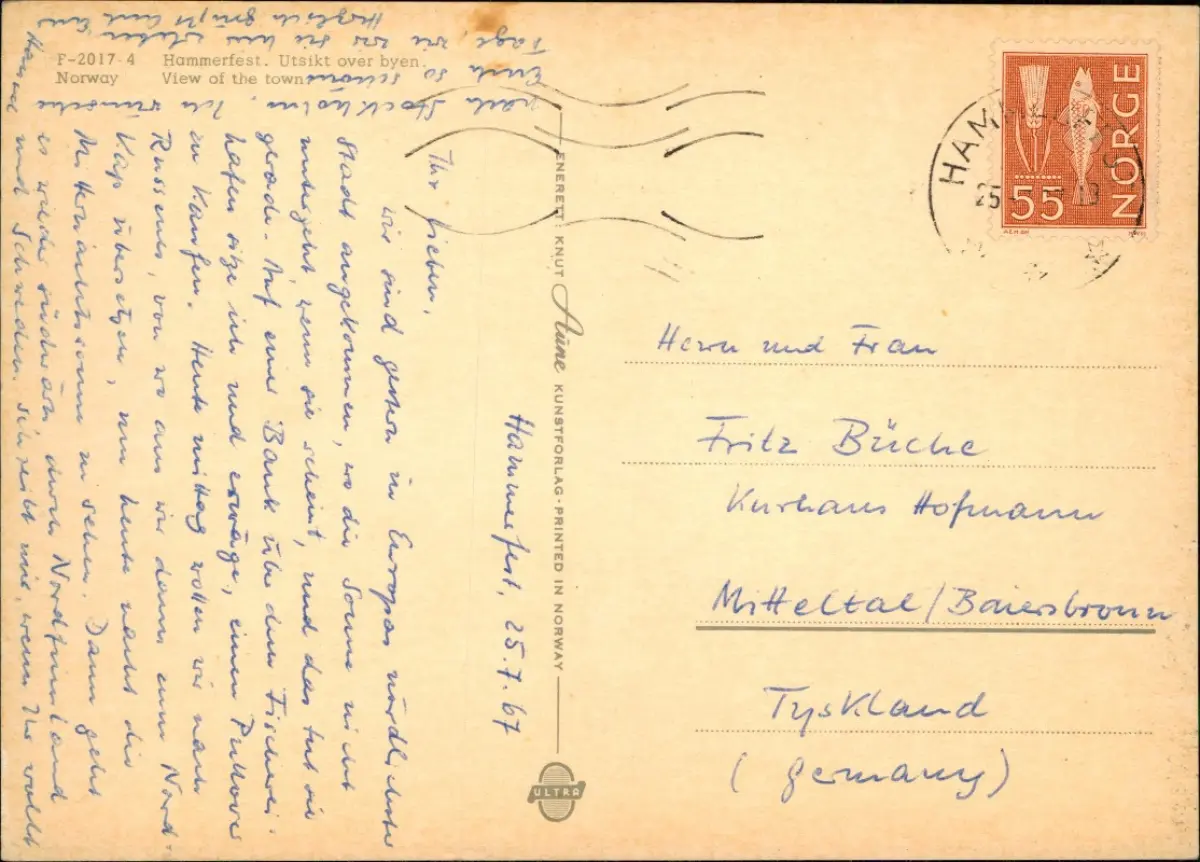 F-2017-4 Hammerfest. Utsikt over byen.
Norway View of the town.
Hammerfest, 25.7.67
Ihr Lieben,
wir sind gestern in Europas nördlichste
Stadt angekommen, wo die Sonne nicht
untergeht, wenn sie scheint, und das tut sie
gerade. Auf einer Bank über dem Fischerei-
hafen sitze ich und erwäge, einen Pullover
zu kaufen. Heute mittag wollen wir nach
Russenes, von wo aus wir dann zum Nord-
kap übersetzen, um heute nacht die
Mitternachtssonne zu sehen. Dann geht
es wieder südwärts durch Nordfinnland
und Schweden. Schreibt mir, wenn Ihr wollt
nach Stockholm. Ich wünsche
Euch so schöne
Tage, wie wir sie hier erleben.
Herzlich grüßt und
ENERETT: KNUT Aune KUNSTFORLAG · PRINTED IN NORWAY
ULTRA
NORGE
55
HAMMERFEST
25
Herrn und Frau
Fritz Büche
Kurhaus Hofmann
Mitteltal/Baiersbronn
Tyskland
(Germany)